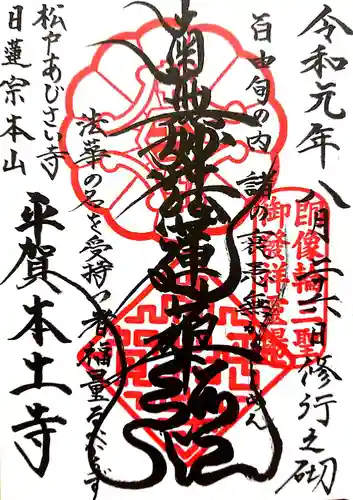 令和元年八月二十六日修行之砌
百由旬の内諸の衰患無からしめん
南無妙法蓮華経
法華の名を受持つ者福量るべからず
松戸あじさい寺
日蓮宗本山
平賀本土寺
御發祥霊場